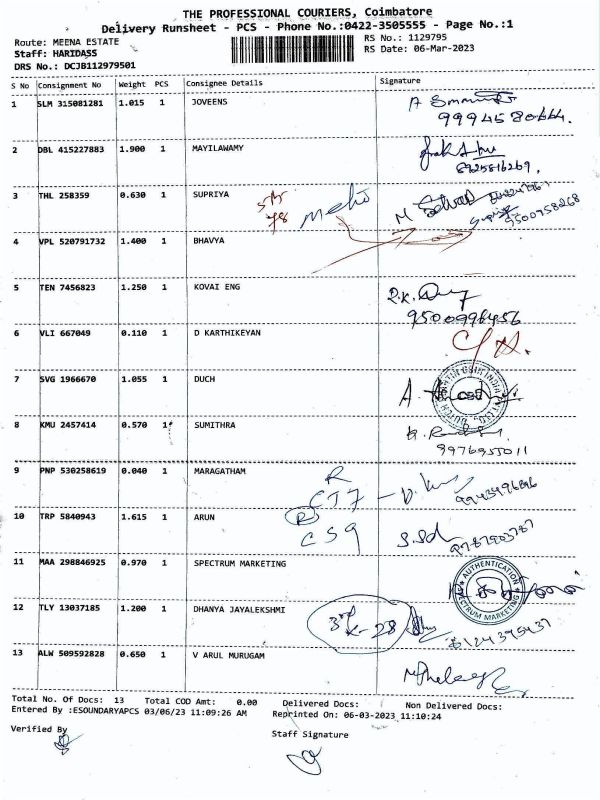 THE PROFESSIONAL COURIERS, Coimbatore
Delivery Runsheet - PCS - Phone No.:0422-3505555 - Page No.:1
Route: MEENA ESTATE
RS No.: 1129795
Staff: HARIDASS
RS Date: 06-Mar-2023
DRS No.: DCJB112979501
S No Consignment No Weight PCS Consignee Details Signature
1 SLM 315081281 1.015 1 JOVEENS
9994580664.
2 DBL 415227883 1.900 1 MAYILAWAMY
8925816269.
3 THL 258359 0.630 1 SUPRIYA
9500758268
4 VPL 520791732 1.400 1 BHAVYA
5 TEN 7456823 1.250 1 KOVAI ENG
9500996456
6 VLI 667049 0.110 1 D KARTHIKEYAN
7 SVG 1966670 1.055 1 DUCH
8 KMU 2457414 0.570 1 SUMITHRA
9976955011
9 PNP 530258619 0.040 1 MARAGATHAM
R
10 TRP 5840943 1.615 1 ARUN
R
CS9
11 MAA 298846925 0.970 1 SPECTRUM MARKETING
AUTHENTICATION
SPECTRUM MARKETING
12 TLY 13037185 1.200 1 DHANYA JAYALEKSHMI
3rd
K-28
8124395437
13 ALW 509592828 0.650 1 V ARUL MURUGAM
Total No. Of Docs: 13 Total COD Amt: 0.00 Delivered Docs: Non Delivered Docs:
Entered By :ESOUNDARYAPCS 03/06/23 11:09:26 AM Reprinted On: 06-03-2023 11:10:24
Verified By
Staff Signature